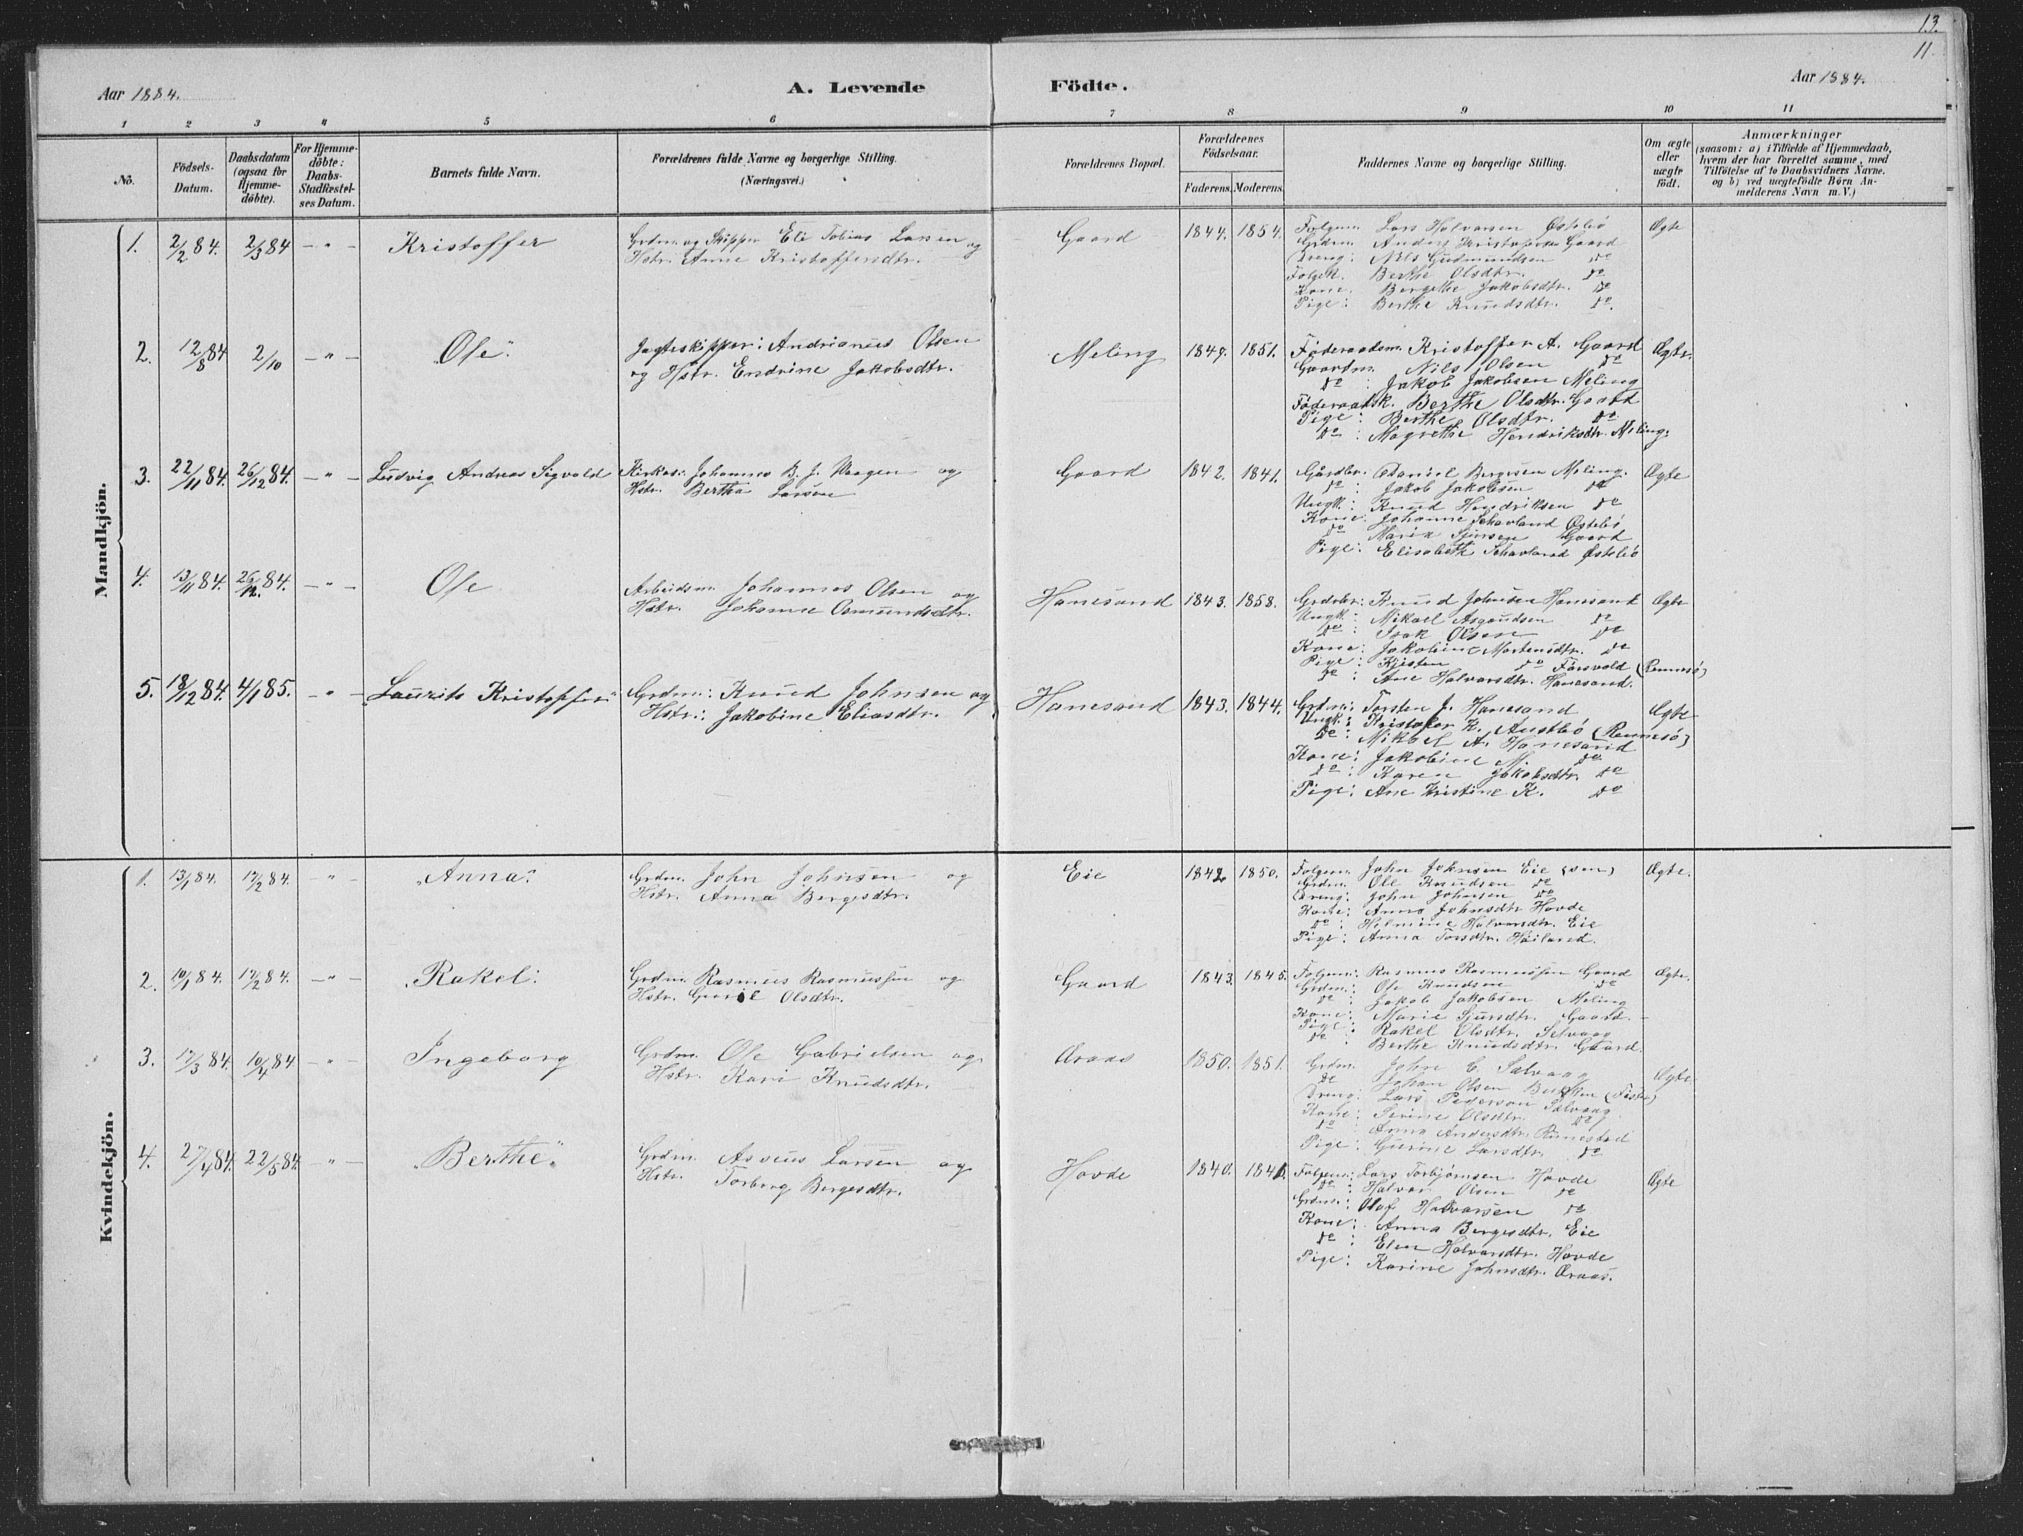 13.
11.
Aar 1884.
A. Levende
Födte.
Aar 1884.
1 2 3 4 5 6 7 8 9 10 11
No.
Födsels-Datum.
Daabsdatum (ogsaa for Hjemme-döbte).
For Hjemme-döbte: Daabs-Stadfæstel-ses Datum.
Barnets fulde Navn.
Forældrenes fulde Navne og borgerlige Stilling. (Næringsvei.)
Forældrenes Bopæl.
Forældrenes Födselsaar.
Faderens. Moderens.
Faddernes Navne og borgerlige Stilling.
Om ægte eller uægte födt.
Anmærkninger
(saasom: a) i Tilfælde af Hjemmedaab,
hvem der har forrettet samme, med
Tilföielse af to Daabsvidners Navne,
og b) ved uægtefödte Börn An-
melderens Navn m.V.)
Mandkjön.
1. 2/2 84. 2/3 84 — " — Kristoffer
Grdm. og Skipper Eli Tobias Larsen og
Hstr. Anne Kristoffersdtr.
Gaard 1844. 1854.
Folgem. Lars Halvorsen Østebö
Grdm. Anders Kristofersen Gaard
Dreng: Nils Gudmundsen do
Folgek. Berthe Olsdtr. do
Kone. Bergethe Jakobsdtr. do
Pige: Berthe Knudsdtr. do
Ægte
2. 12/8 84 2/10 — " — Ole.
Jagteskipper: Andrianus Olsen
og Hstr. Endrine Jakobsdtr.
Meling 1849. 1851.
Föderaadsm. Kristoffer A. Gaard
Gaardm. Nils Olsen do
do: Jakob Jakobsen Meling
Föderaadsk. Berthe Olsdtr. Gaard
Pige: Berthe Olsdtr. do
do: Magrethe Hendriksdtr. Meling.
Ægte.
3. 22/11 84. 26/12 84. — " — Ludvig Andreas Sigvald
Kirkes: Johannes B. J. Waagen og
Hstr. Bertha Larsen
Gaard 1842. 1841.
Gårdbr. Daniel Bergesen Meling.
do: Jakob Jakobsen do
Ungk: Knud Hendriksen do
Kone: Johanne Schavland Østebö
do Maria Sjursen Gaard
Pige: Elisabeth Schavland Østebö
Ægte
4. 13/11 84. 26/12. 84. — " — Ole
Arbeidsm. Johannes Olsen og
Hstr. Johanne Osmundsdtr.
Hanesand 1843. 1858.
Grdbr: Knud Johnsen Hanesand
Ungk: Mikael Asgaudsen do
do: Isak Olsen do
Kone: Jakobine Mortensdtr. do
Pige: Kjisten do Försvold (Rennesö)
do: Ane Halvorsdtr. Hanesand.
Ægte
5. 18/12 84. 4/1 85. — " — Laurits Kristoffer
Grdm.: Knud Johnsen og
Hstr.: Jakobine Eliasdtr.
Hanesand 1843. 1844.
Grdm: Torsten J. Hanesand
Ungk: Kristofer K. Austbö (Rennesö)
do: Mikael A. Hanesand
Kone: Jakobine M. do
do: Karen Jakobsdtr. do
Pige: Ane Kristine K. do
Ægte
Kvindekjön.
1. 13/1 84. 17/2 84. — " — "Anna"
Grdm. John Johnsen og
Hstr. Anna Bergesdtr.
Eie 1842 1850.
Folgem. John Johnsen Eie (sen)
Grdm. Ole Knudsen do
Dreng: John Johnsen do
Kone: Anna Johnsdtr Hovde
do: Helmine Halvorsdtr. Eie
Pige: Anna Torsdtr. Höiland.
Ægte.
2. 10/1 84. 17/2 84. — " — Rakel.
Grdm. Rasmus Rasmussen og
Hstr. Guril Olsdtr.
Gaard 1843. 1845.
Folgem: Rasmus Rasmussen Gaard
Grdm: Ole Knudsen do
do: Jakob Jakobsen Meling
Kone: Marie Sjursdtr. Gaard.
Pige: Rakel Olsdtr. Selvaag
do: Berthe Knudsdtr. Gaard
Ægte.
3. 17/3 84. 10/4 84 — " — Ingeborg
Grdm. Ole Gabrielsen og
Hstr. Kari Knudsdtr.
Araas 1850. 1851.
Grdm: John C. Salvaag
do Johan Olsen (Fister)
Dreng: Lars Pederson Salvaag
Kone: Serine Olsdtr. do
do: Anna Andersdtr. Rimestad
Pige: Gurine Larsdtr. do
Ægte
4. 27/4 84. 22/5 84. — " — "Berthe"
Grdm. Asseus Larsen og
Hstr. Torborg Bergesdtr.
Hovde 1840. 1841.
Folgem: Lars Torbjörnsen Hovde
do: Halvor Olsen do
Grdm: Olaf Halvorsen do
Kone: Anna Bergesdtr. Eie
do: Elen Halvorsdtr. Hovde
Pige: Karine Johnsdtr. Araas.
Ægte